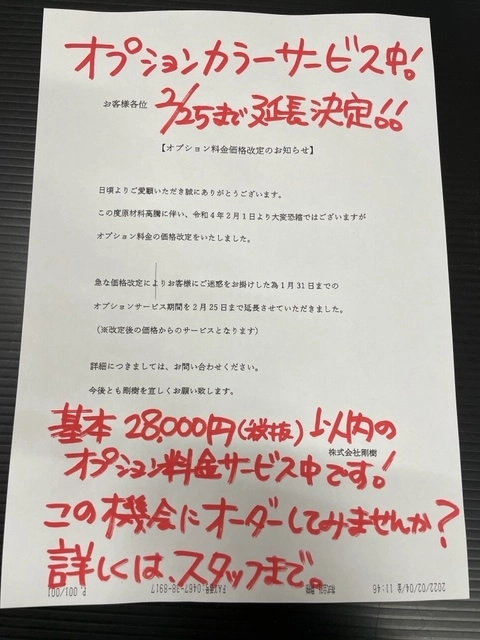 オプションカラーサービス中!
お客様各位
2/25まで延長決定!!
【オプション料金価格改定のお知らせ】
日頃よりご愛顧いただき誠にありがとうございます。
この度原材料高騰に伴い、令和4年2月1日より大変恐縮ではございますが
オプション料金の価格改定をいたしました。
急な価格改定によりお客様にご迷惑をお掛けした為1月31日までの
オプションサービス期間を2月25日まで延長させていただきました。
（※改定後の価格からのサービスとなります）
詳細につきましては、お問い合わせください。
今後とも剛樹を宜しくお願い致します。
基本28,000円(税抜)以内の
株式会社剛樹
オプション料金サービス中です!
この機会にオーダーしてみませんか?
詳しくは、スタッフまで。
2022/02/04/金 11:46 株式会社 剛樹 FAX番号:0467-38-8917 P.001/001